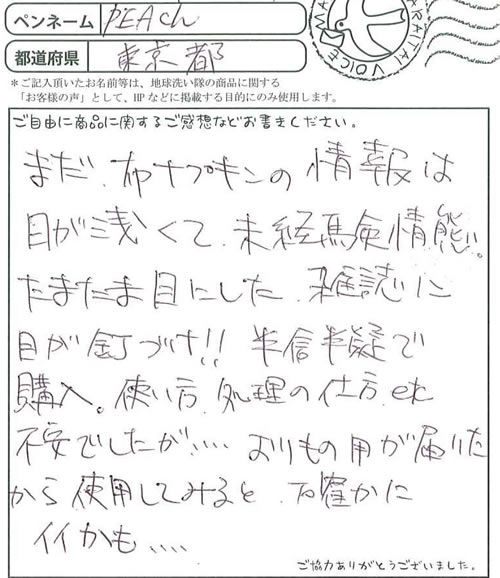 ペンネーム PEACH
都道府県 東京都
ARAITAI VOICE
＊ご記入頂いたお名前等は、地球洗い隊の商品に関する
「お客様の声」として、HPなどに掲載する目的にのみ使用します。
ご自由に商品に関するご感想などお書きください。
まだ、布ナプキンの情報は
目が浅くて、未経験情態。
たまたま目にした、雑誌に
目が釘づけ!! 半信半疑で
購入。使い方、処理の仕方、etc
不安でしたが、... おりもの用が届いた
から使用してみると、確かに
イイかも....
ご協力ありがとうございました。